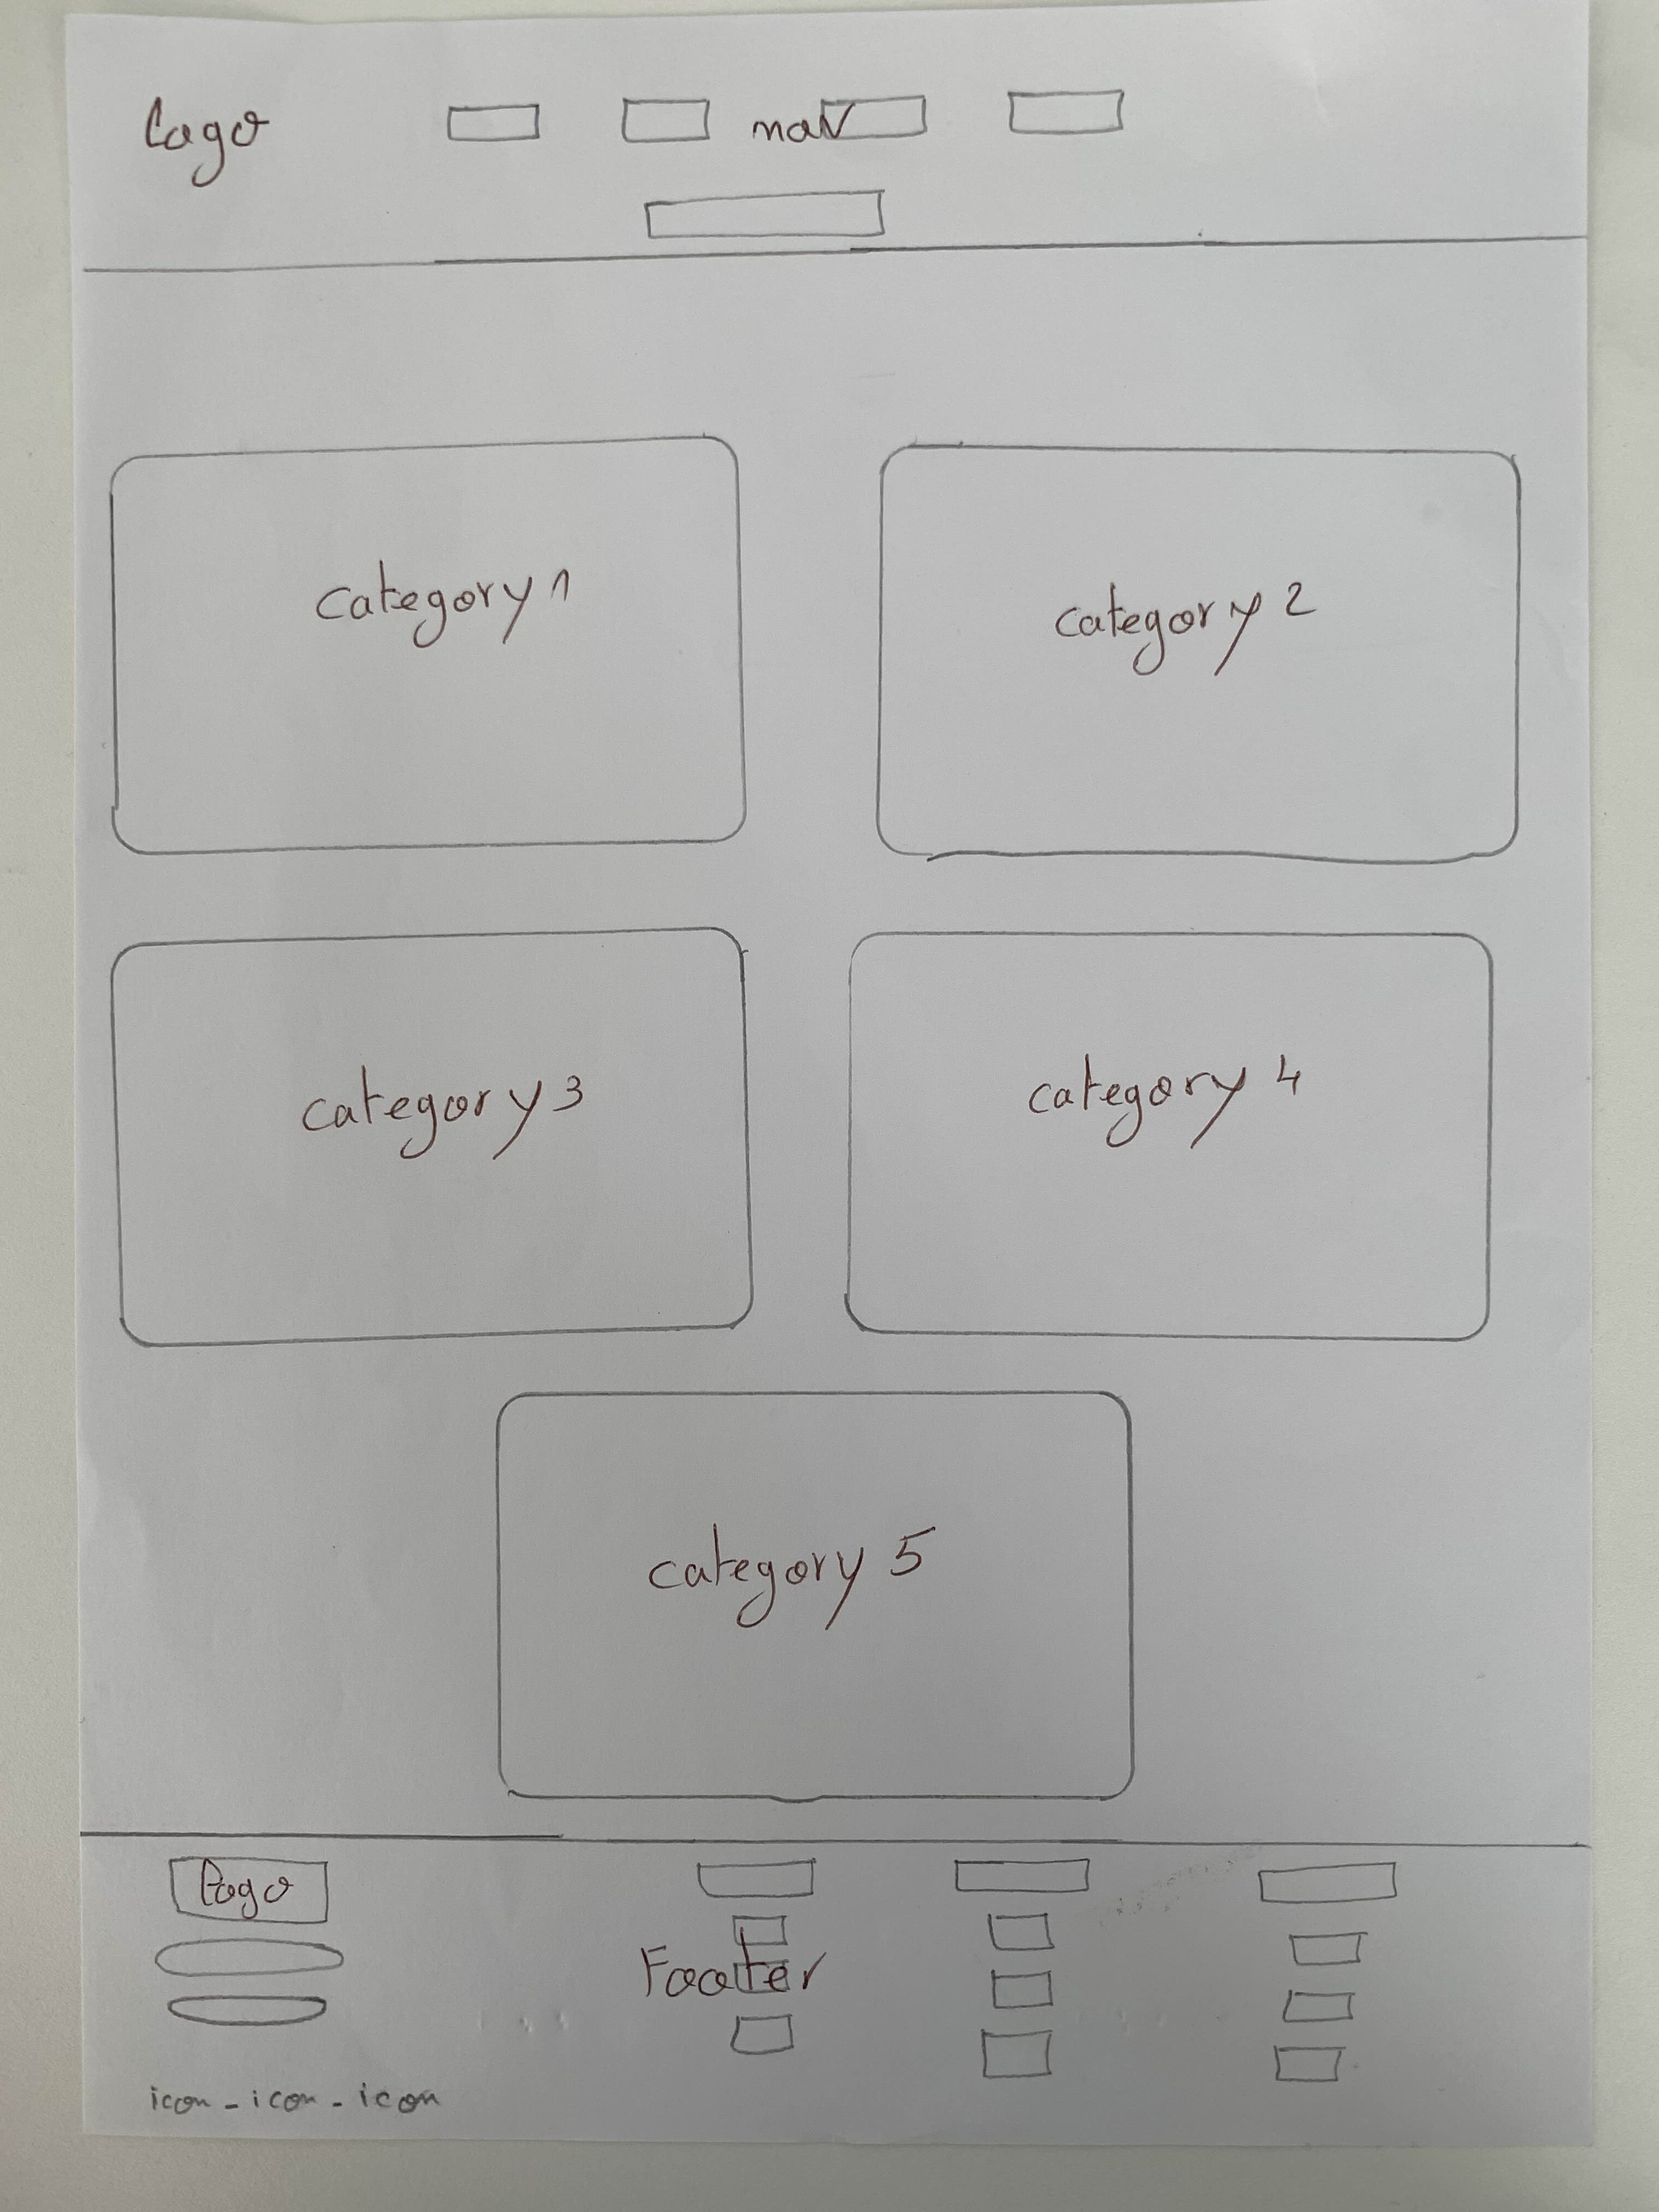 Logo
nav
category 1
category 2
category 3
category 4
category 5
Logo
Footer
icon - icon - icon